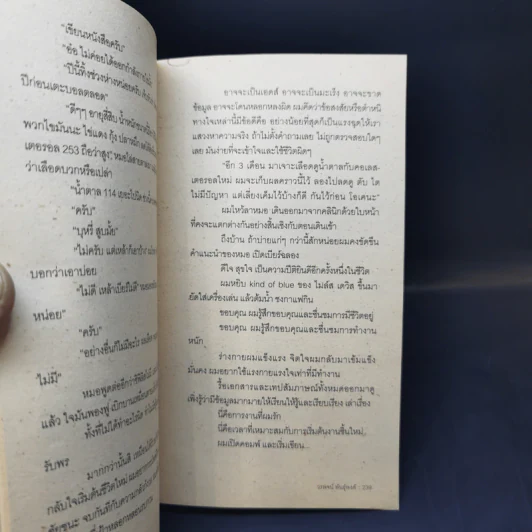 "เขียนหนังสือครับ"
"อ๋อ ไม่ค่อยได้ออกกำลังกายใช่มั้ย
"ปีนี้ทิ้งช่วงห่างหน่อยครับ
ปีก่อนเตะบอลตลอด"
"ดีๆๆ อายุสี่สิบ น้ำหนัก
พวกไขมันนะ ไข่แดง กุ้ง ปลาหมึก
เตอรอล 253 ถือว่าสูง" หมอไล่สายตา
ว่าเลือดบวกหรือเปล่า
"น้ำตาล 114 เยอะไปนิด
"ครับ"
"บุหรี่ สูบมั้ย"
"ไม่ครับ แต่เหล้า
บอกว่าเอาบ่อย
"ไม่ดี เหล้าเบียร์ไม่ดี
หน่อย"
"ครับ"
"อย่างอื่นก็ไม่มีอะไร
ไม่มี"
หมอพูดต่ออีกว่า
แล้ว ใจมันพองฟู เบิกบาน
ทั้งที่ไม่ได้ทำอะไร
รับพร
มากกว่านั้นสิ
กลับใจเริ่มต้นชีวิตใหม่
จบกันที
อาจจะเป็นเอดส์ อาจจะเป็นมะเร็ง อาจจะขาด
ข้อมูล อาจจะโดนหลอกหลงผิด ผมคิดว่าข้อสงสัยหรือตำหนิ
ทางใจเหล่านี้มีข้อดีคือ อย่างน้อยที่สุดก็เป็นแรงฉุดให้เรา
แสวงหาความจริง ถ้าไม่ตั้งคำถามเลย ไม่ถูกตรวจสอบใดๆ
เลย มันง่ายที่จะเข้าใจและใช้ชีวิตผิดๆ
"อีก 3 เดือน มาเจาะเลือดดูน้ำตาลกับคอเลส-
เตอรอลใหม่ ผมจะเก็บผลคราวนี้ไว้ ลองไปลดดู ตับ ไต
ไม่มีปัญหา แต่เลี่ยงเค็มไว้บ้างก็ดี กันไว้ก่อน โอเคนะ"
ผมไหว้ลาหมอ เดินออกมาจากคลินิกด้วยใบหน้า
ที่คงจะแตกต่างอย่างสิ้นเชิงกับตอนเดินเข้า
ถึงบ้าน ถ้าบ่ายแก่ๆ กว่านี้สักหน่อยผมคงขัดขืน
คำแนะนำของหมอ เปิดเบียร์ฉลอง
ดีใจ สุขใจ เป็นความปีติยินดีอีกครั้งหนึ่งในชีวิต
ผมหยิบ kind of blue ของ ไมล์ส เดวิส ขึ้นมา
ยัดใส่เครื่องเล่น แล้วต้มน้ำ ชงกาแฟกิน
ขอบคุณ ผมรู้สึกขอบคุณและชื่นชมการมีชีวิตอยู่
ขอบคุณ ผมรู้สึกขอบคุณและชื่นชมการทำงาน
หนัก
ร่างกายผมแข็งแรง จิตใจผมกลับมาเข้มแข็ง
มั่นคง ผมอยากใช้แรงกายแรงใจเท่าที่มีทำงาน
รื้อเอกสารและเทปสัมภาษณ์ทั้งหมดออกมาดู
เพิ่งรู้ว่ามีข้อมูลมากมายให้เรียนให้รู้และเรียบเรียง เล่าเรื่อง
นี่คือการงานที่ผมรัก
นี่คือเวลาที่เหมาะสมกับการเริ่มต้นงานชิ้นใหม่
ผมเปิดคอมพ์ และเริ่มเขียน...